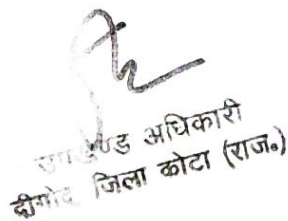 उपखण्ड अधिकारी
दीगोद जिला कोटा (राज०)